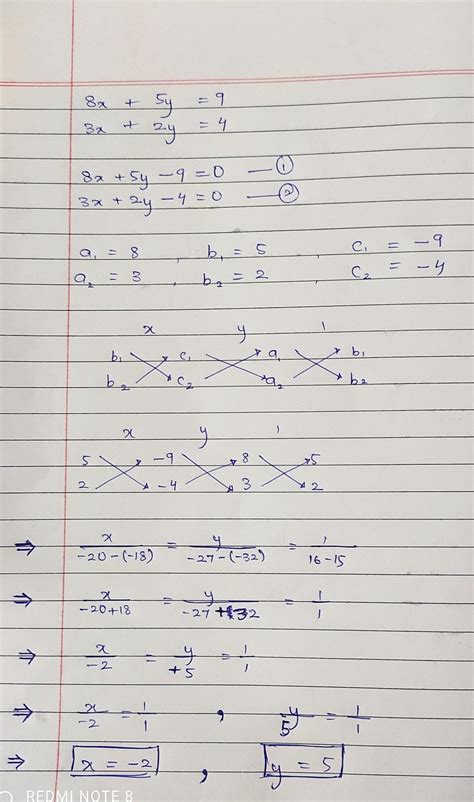 8x + 5y = 9
3x + 2y = 4
8x + 5y - 9 = 0 — ①
3x + 2y - 4 = 0 — ②
a₁ = 8 , b₁ = 5 , c₁ = -9
a₂ = 3 , b₂ = 2 , c₂ = -4
x y 1
b₁ c₁ a₁ b₁
b₂ c₂ a₂ b₂
x y 1
5 -9 8 5
2 -4 3 2
⇒ x/-20-(-18) = y/-27-(-32) = 1/16-15
⇒ x/-20+18 = y/-27+32 = 1/1
⇒ x/-2 = y/+5 = 1/1
⇒ x/-2 = 1/1 , y/5 = 1/1
⇒ x = -2 , y = 5
REDMI NOTE 8